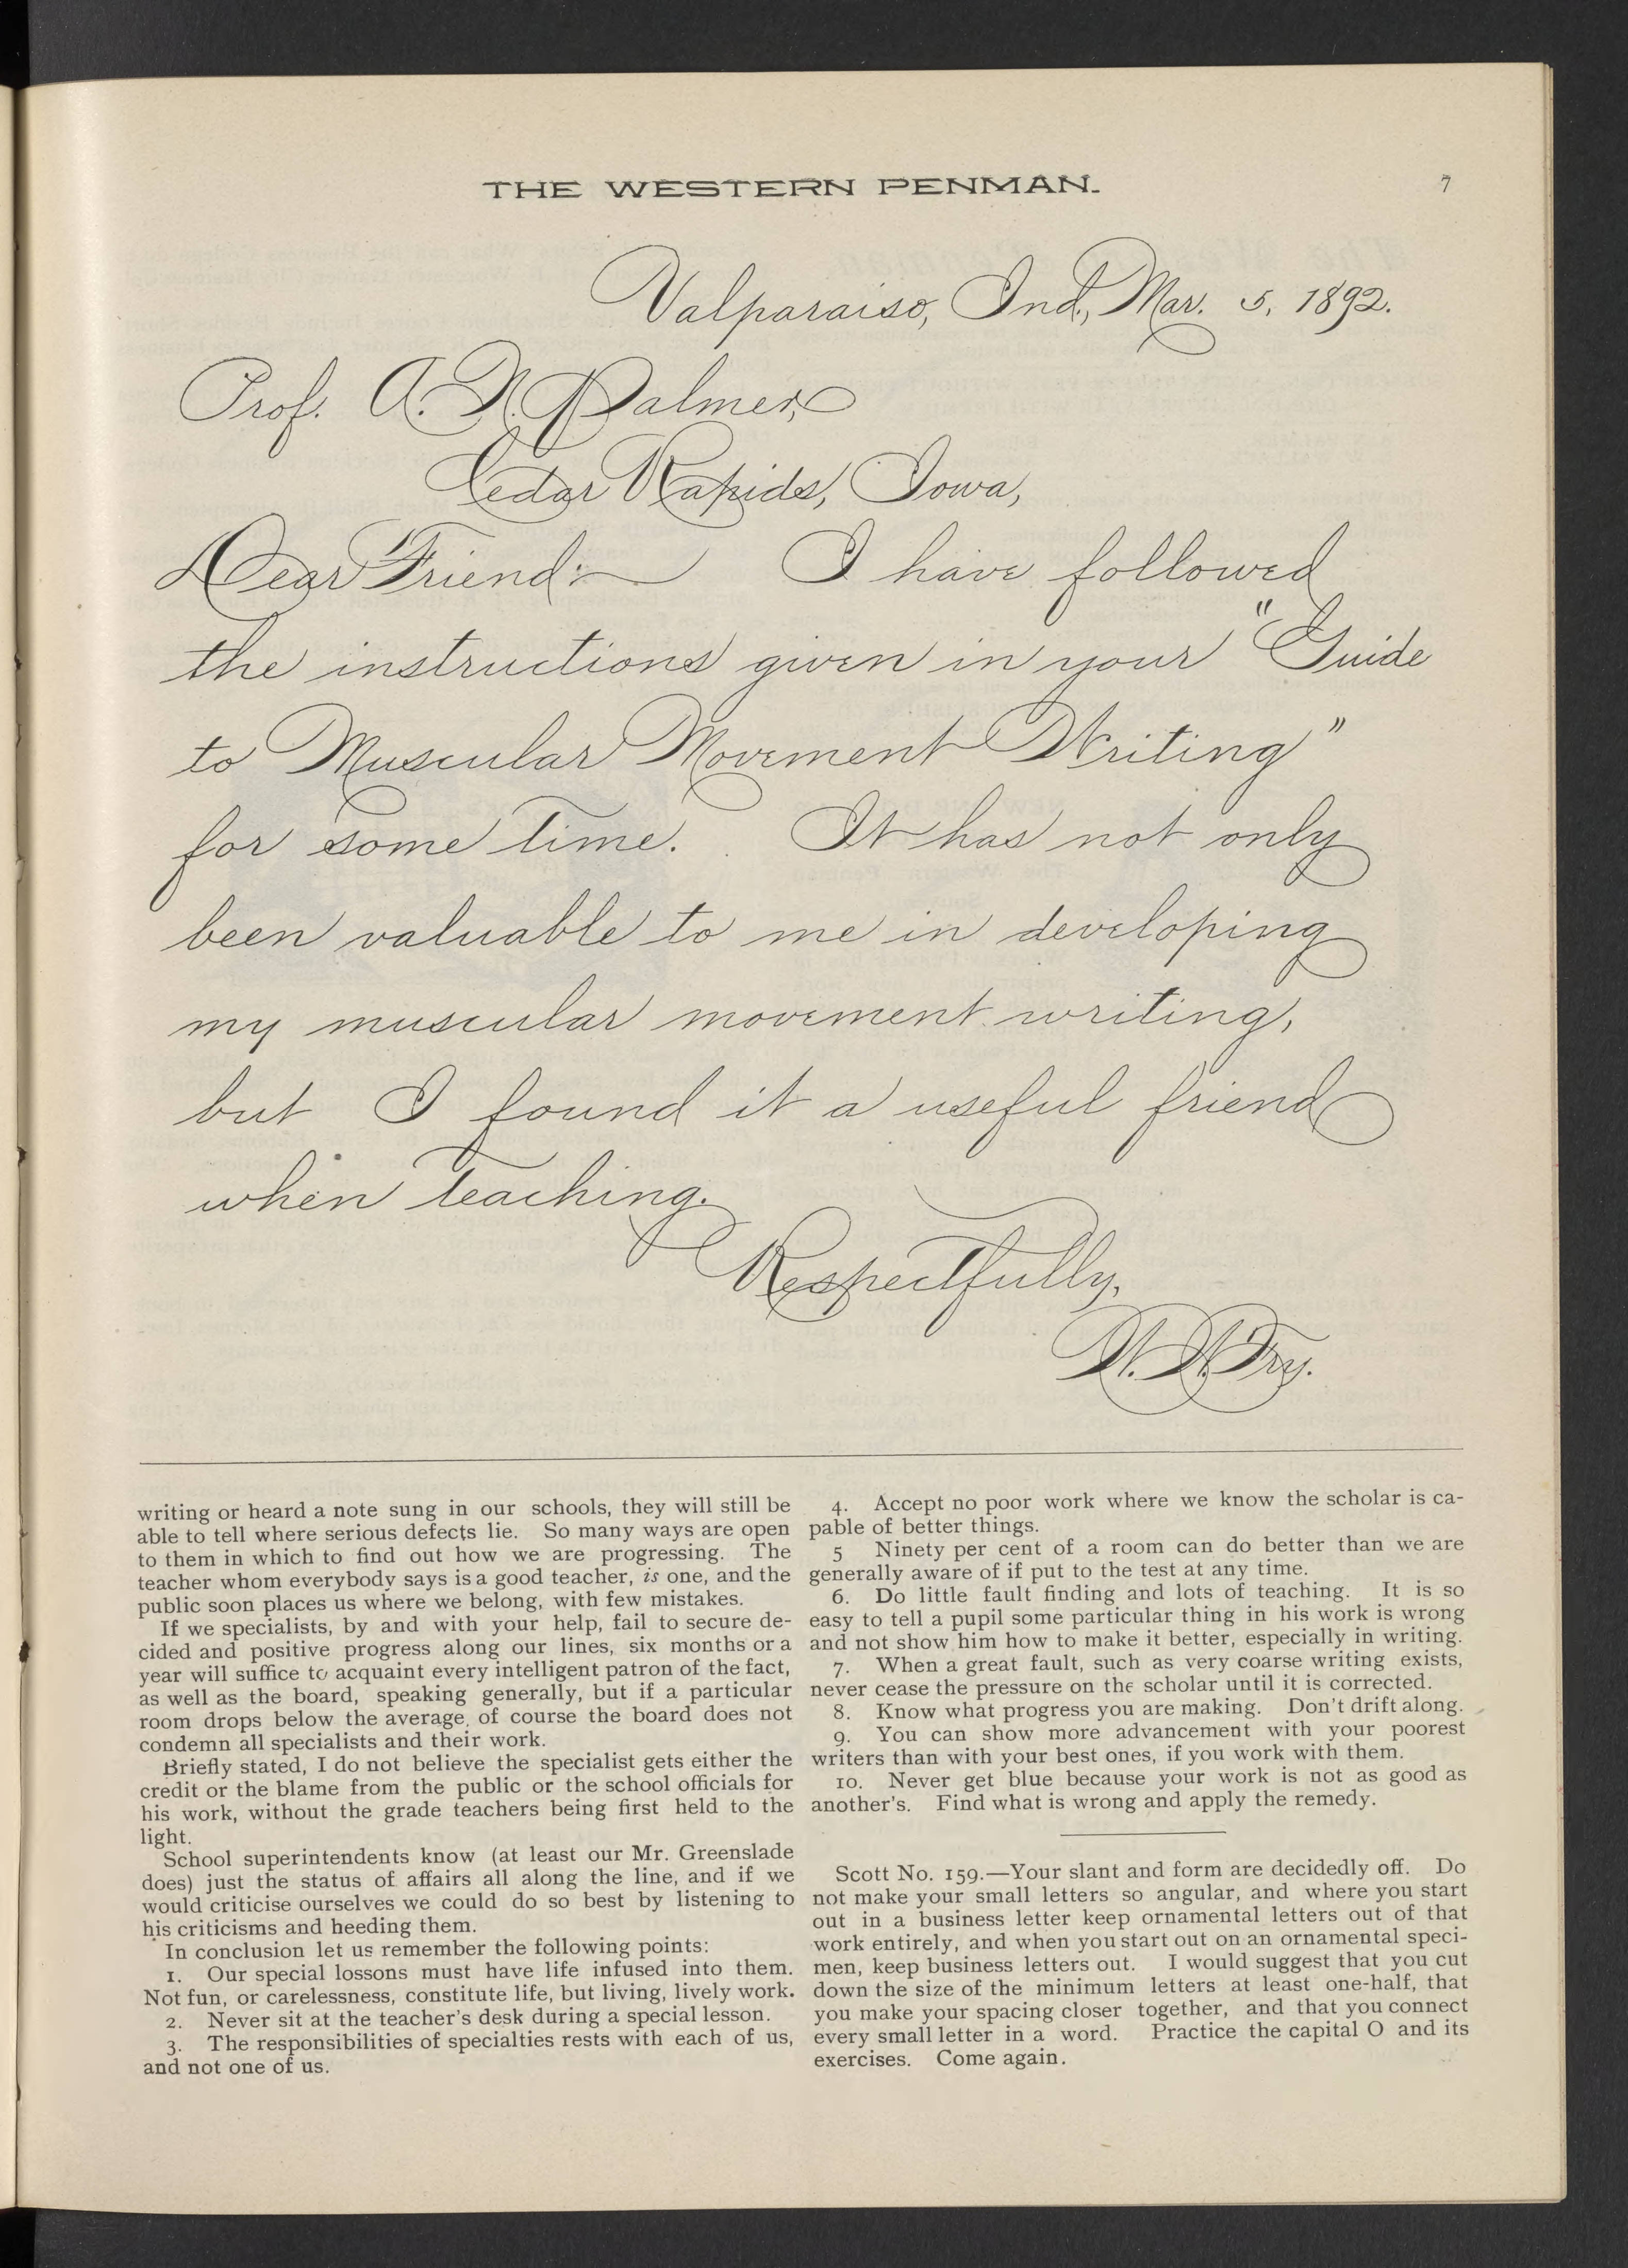 THE WESTERN PENMAN.
7
Valparaiso, Ind., Mar. 5, 1892.
Prof. A. N. Palmer,
Cedar Rapids, Iowa,
Dear Friend:— I have followed
the instructions given in your "Guide
to Muscular Movement Writing"
for some time. It has not only
been valuable to me in developing
my muscular movement writing,
but I found it a useful friend
when teaching.
Respectfully,
W. W. Fry.
writing or heard a note sung in our schools, they will still be
able to tell where serious defects lie. So many ways are open
to them in which to find out how we are progressing. The
teacher whom everybody says is a good teacher, is one, and the
public soon places us where we belong, with few mistakes.
If we specialists, by and with your help, fail to secure de-
cided and positive progress along our lines, six months or a
year will suffice to acquaint every intelligent patron of the fact,
as well as the board, speaking generally, but if a particular
room drops below the average, of course the board does not
condemn all specialists and their work.
Briefly stated, I do not believe the specialist gets either the
credit or the blame from the public or the school officials for
his work, without the grade teachers being first held to the
light.
School superintendents know (at least our Mr. Greenslade
does) just the status of affairs all along the line, and if we
would criticise ourselves we could do so best by listening to
his criticisms and heeding them.
In conclusion let us remember the following points:
1. Our special lossons must have life infused into them.
Not fun, or carelessness, constitute life, but living, lively work.
2. Never sit at the teacher's desk during a special lesson.
3. The responsibilities of specialties rests with each of us,
and not one of us.
4. Accept no poor work where we know the scholar is ca-
pable of better things.
5 Ninety per cent of a room can do better than we are
generally aware of if put to the test at any time.
6. Do little fault finding and lots of teaching. It is so
easy to tell a pupil some particular thing in his work is wrong
and not show him how to make it better, especially in writing.
7. When a great fault, such as very coarse writing exists,
never cease the pressure on the scholar until it is corrected.
8. Know what progress you are making. Don't drift along.
9. You can show more advancement with your poorest
writers than with your best ones, if you work with them.
10. Never get blue because your work is not as good as
another's. Find what is wrong and apply the remedy.
Scott No. 159.—Your slant and form are decidedly off. Do
not make your small letters so angular, and where you start
out in a business letter keep ornamental letters out of that
work entirely, and when you start out on an ornamental speci-
men, keep business letters out. I would suggest that you cut
down the size of the minimum letters at least one-half, that
you make your spacing closer together, and that you connect
every small letter in a word. Practice the capital O and its
exercises. Come again.